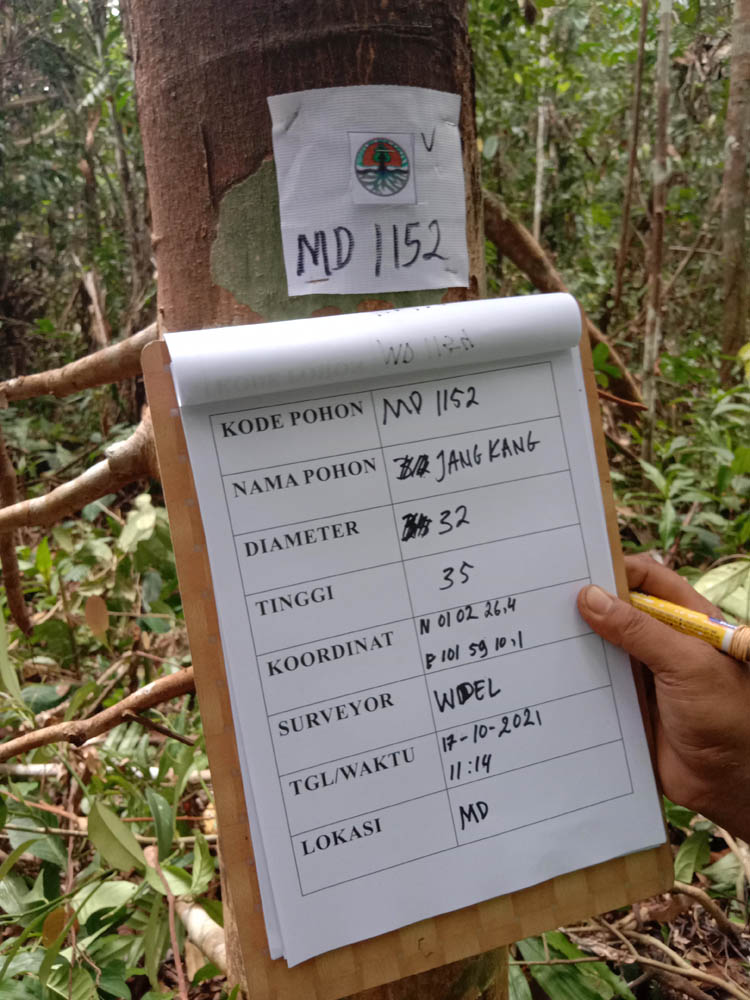 V
MD 1152
KODE POHON MD 1152
NAMA POHON JANGKANG
DIAMETER 32
TINGGI 35
KOORDINAT N 01 02 26,4
E 101 59 10,1
SURVEYOR WDEL
TGL/WAKTU 17-10-2021
11:14
LOKASI MD